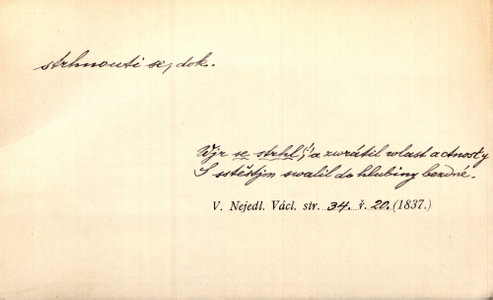 strhnouti se, dok.
Wýr se strhl, a zwrátil wlast a ctnosty
S sstěstjm swalil do hlubiny bezdné.
V. Nejedl. Václ. str. 34. ř. 20. (1837.)